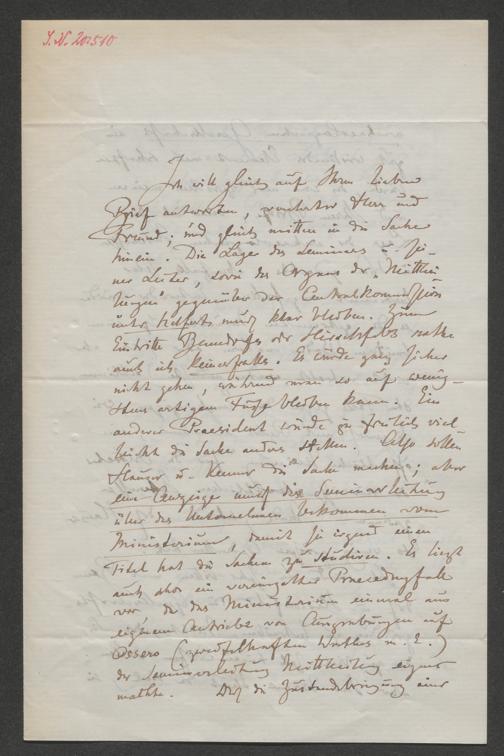 J. N. 202510
Ich will gleich auf Ihren lieben
Brief antworten, verehrter Herr und
Freund. und gleich mitten in die Sache
hinein. Die Lage des Seminars u. sei-
ner Leiter, sowie des Organs der „Mitthei-
lungen" gegenüber der Centralkommission
unter Helferts muss klar bleiben. Zum
Eintritte Benndorfs oder Hirschfelds rathe
auch ich keinesfalls. Es würde ganz sicher
nicht gehen, während man so auf wenig-
stens artigem Fuße bleiben kann. Ein
anderer Praesident würde ja freilich viel-
leicht die Sache anders stellen. Also sollen
Hauser u. Kenner die Sache machen; aber
eine Anzeige muss die Seminarleitung
über das Unternehmen bekommen vom
Ministerium, damit sie irgend einen
Titel hat die Sachen zu studiren. Es liegt
auch schon ein vereinzelter Praecedenzfall
vor, da das Ministerium einmal aus
eigenem Antriebe von Ausgrabungen auf
Ossero (zweifelhaften Werthes n. E.)
der Seminarleitung Mittheilung
machte. Daß die Zustandebringung einer